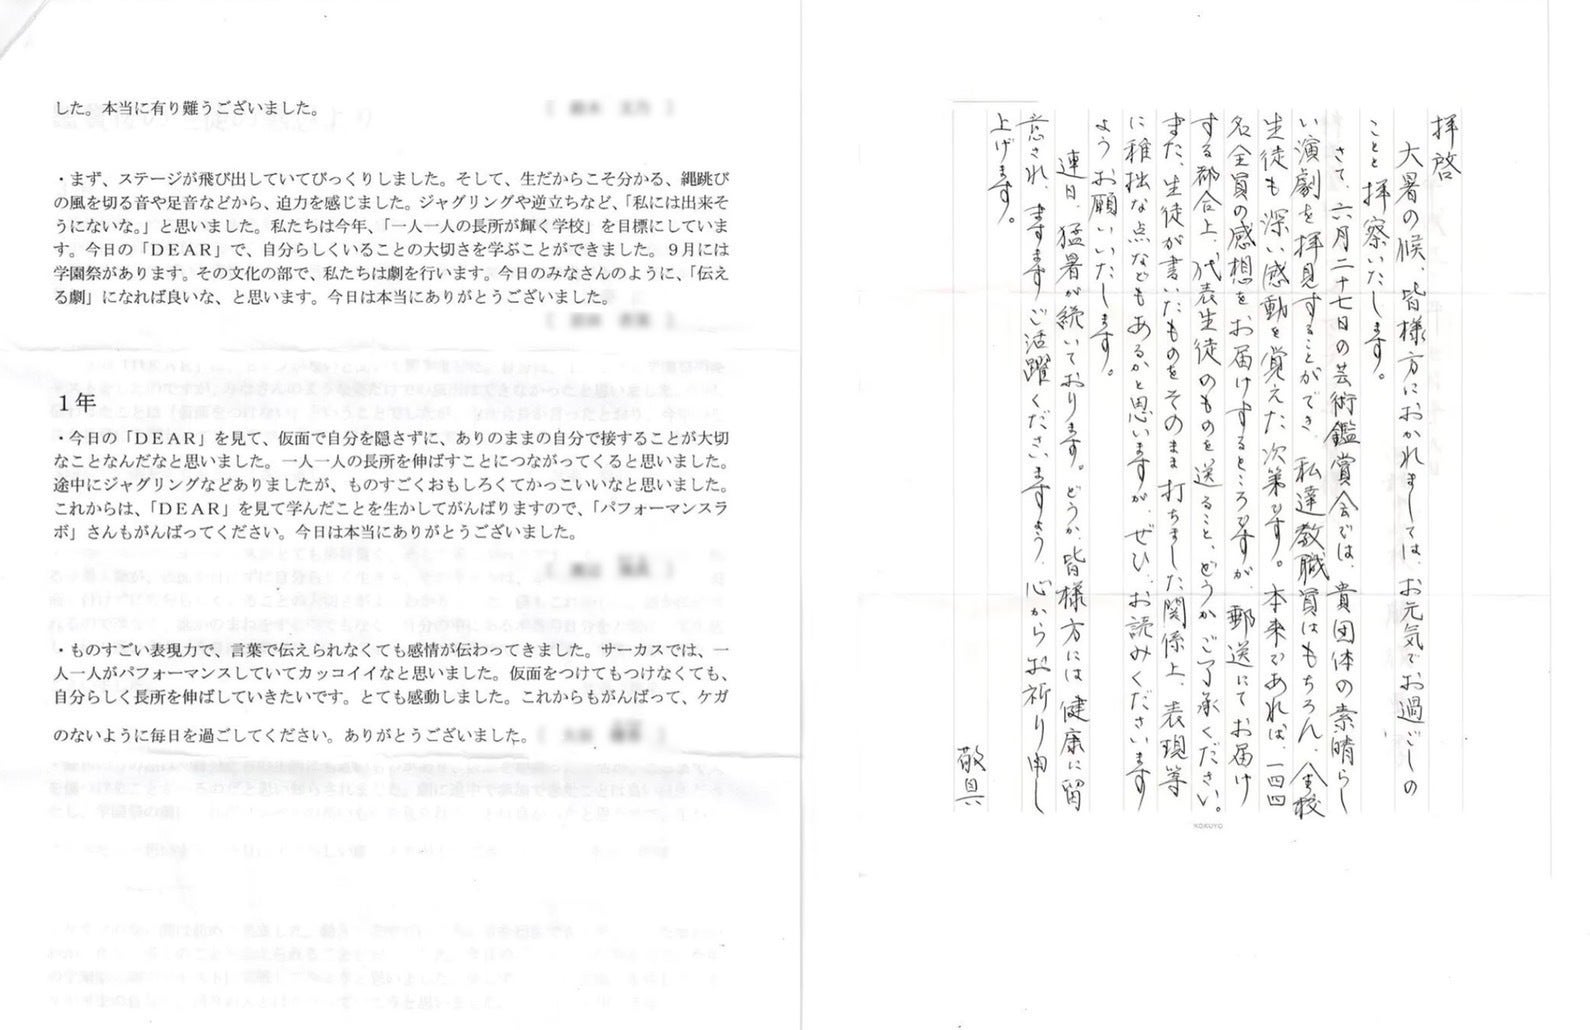 した。本当に有り難うございました。
・まず、ステージが飛び出していてびっくりしました。そして、生だからこそ分かる、縄跳び
の風を切る音や足音などから、迫力を感じました。ジャグリングや逆立ちなど、「私には出来そ
うにないな。」と思いました。私たちは今年、「一人一人の長所が輝く学校」を目標にしていま
す。今日の「ＤＥＡＲ」で、自分らしくいることの大切さを学ぶことができました。９月には
学園祭があります。その文化の部で、私たちは劇を行います。今日のみなさんのように、「伝え
る劇」になれば良いな、と思います。今日は本当にありがとうございました。
１年
・今日の「ＤＥＡＲ」を見て、仮面で自分を隠さずに、ありのままの自分で接することが大切
なことなんだなと思いました。一人一人の長所を伸ばすことにつながってくると思いました。
途中にジャグリングなどありましたが、ものすごくおもしろくてかっこいいなと思いました。
これからは、「ＤＥＡＲ」を見て学んだことを生かしてがんばりますので、「パフォーマンスラ
ボ」さんもがんばってください。今日は本当にありがとうございました。
・ものすごい表現力で、言葉で伝えられなくても感情が伝わってきました。サーカスでは、一
人一人がパフォーマンスしていてカッコイイなと思いました。仮面をつけてもつけなくても、
自分らしく長所を伸ばしていきたいです。とても感動しました。これからもがんばって、ケガ
のないように毎日を過ごしてください。ありがとうございました。
拝啓
大暑の候、皆様方におかれましては、お元気でお過ごしの
ことと拝察いたします。
さて、六月二十七日の芸術鑑賞会では、貴団体の素晴らし
い演劇を拝見することができ、私達教職員はもちろん、全校
生徒も深い感動を覚えた次第です。本来であれば、一四四
名全員の感想をお届けするところですが、郵送にてお届け
する都合上、代表生徒のものを送ること、どうかご了承ください。
また、生徒が書いたものをそのまま打ちました関係上、表現等
に稚拙な点などもあるかと思いますが、ぜひ、お読みくださいます
ようお願いいたします。
連日、猛暑が続いております。どうか、皆様方には健康に留
意され、ますますご活躍くださいますよう、心からお祈り申し
上げます。
敬具
KOKUYO